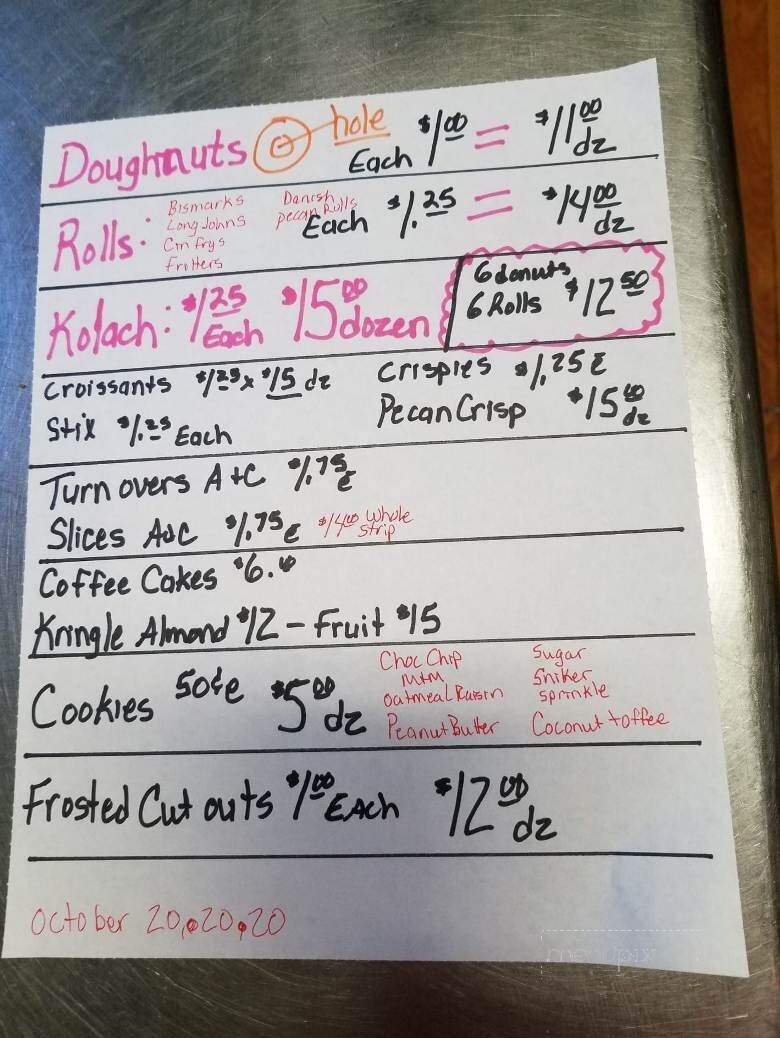 Doughnuts hole Each $1.00 = $11.00 dz
Rolls: Bismarks Danish Each $1.25 = $14.00 dz
Long Johns pecan Rolls
Cin frys
Fritters
Kolach: $1.25 Each $15.00 dozen
6 donuts
6 Rolls $12.50
Croissants $1.25 x $15 dz
Crispies $1.25 E
Stix $1.25 Each
Pecan Crisp $15.00 dz
Turnovers A+C $1.75 E
Slices A&C $1.75 E $14.00 Whole Strip
Coffee Cakes $6.00
Kringle Almond $12 - Fruit $15
Cookies 50¢e $5.00 dz
Choc Chip Sugar
M+M Sniker
Oatmeal Raisin Sprinkle
Peanut Butter Coconut toffee
Frosted Cut outs $1.00 Each $12.00 dz
October 20,20,20
menupix